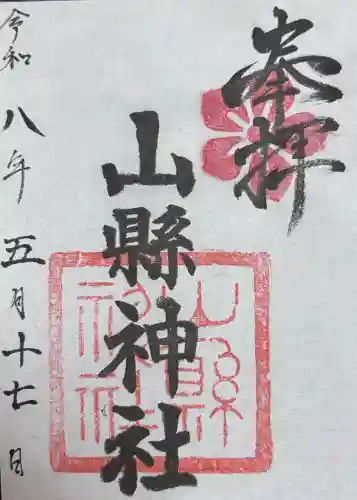 奉拝
山縣神社
山縣神社
令和八年五月十七日